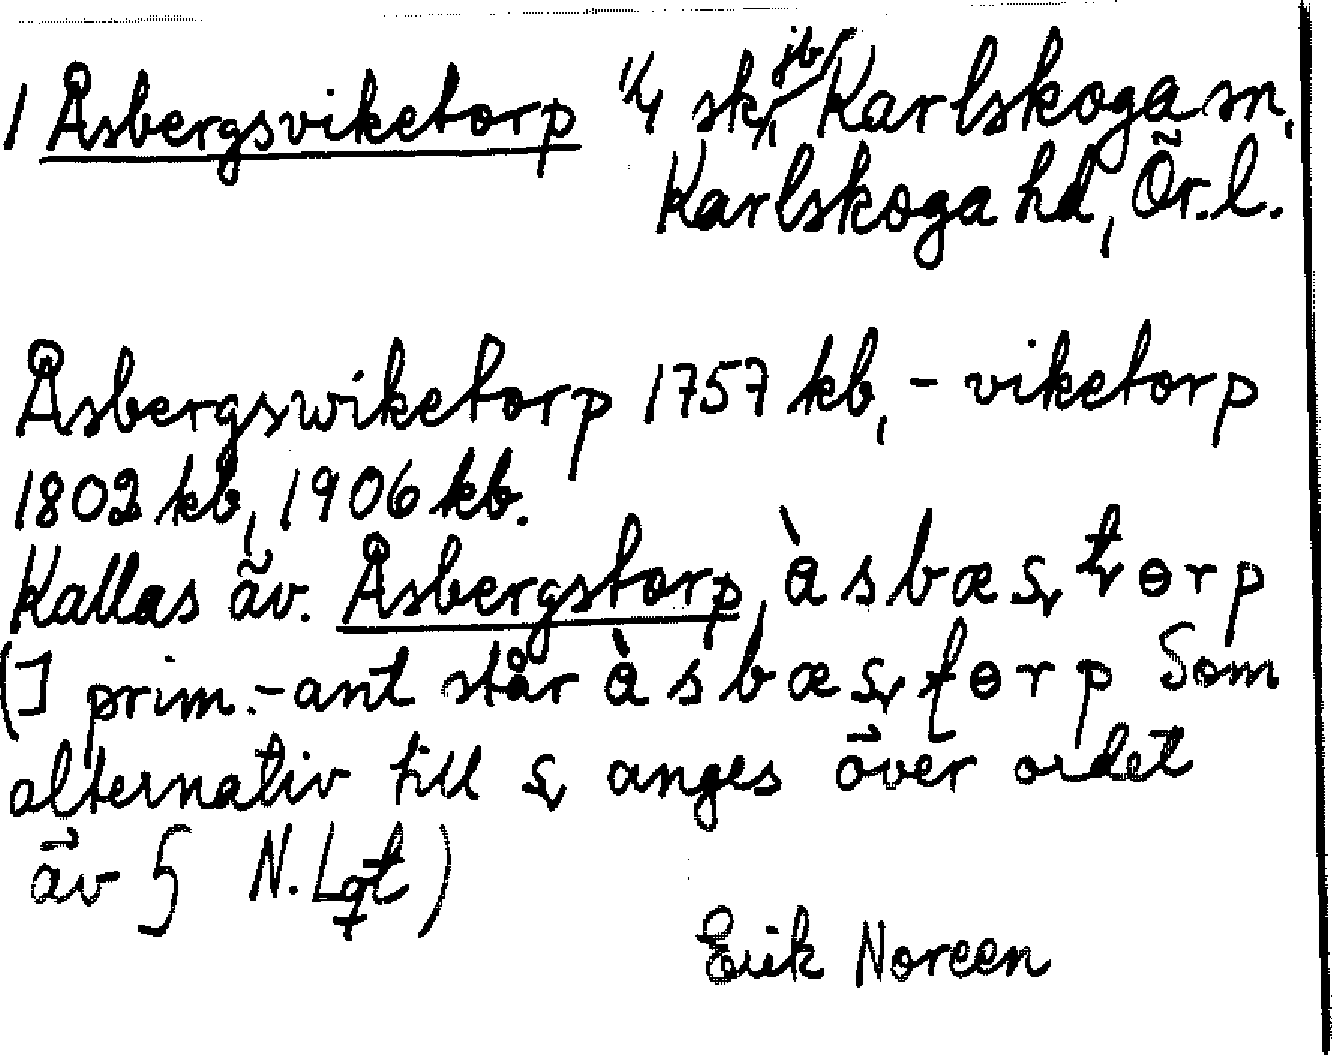 1 Åsbergsviketorp 1/4 sk, jb Karlskoga sn,
Karlskoga hd, Ör. l.
Åsbergswiketorp 1757 kb, - viketorp
1802 kb, 1906 kb.
Kallas äv. Åsbergstorp,
(I prim.-ant står
Som
alternativ till anges över ordet
äv N. Lgt)
Erik Noreen